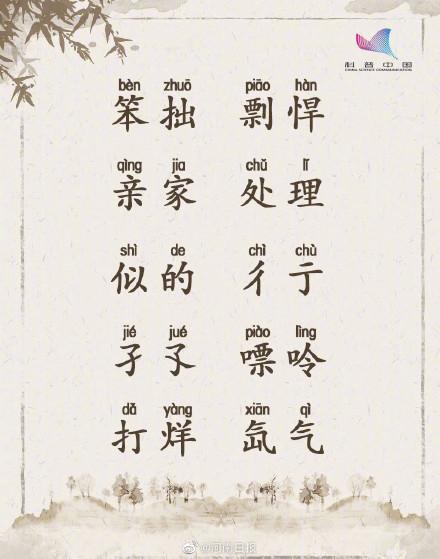 科普中国
CHINA SCIENCE COMMUNICATION
bèn zhuō piāo hàn
笨拙 剽悍
qìng jia chǔ lǐ
亲家 处理
shì de chì chù
似的 彳亍
jié jué piào lìng
孑孓 嘌呤
dǎ yàng xiān qì
打烊 氙气